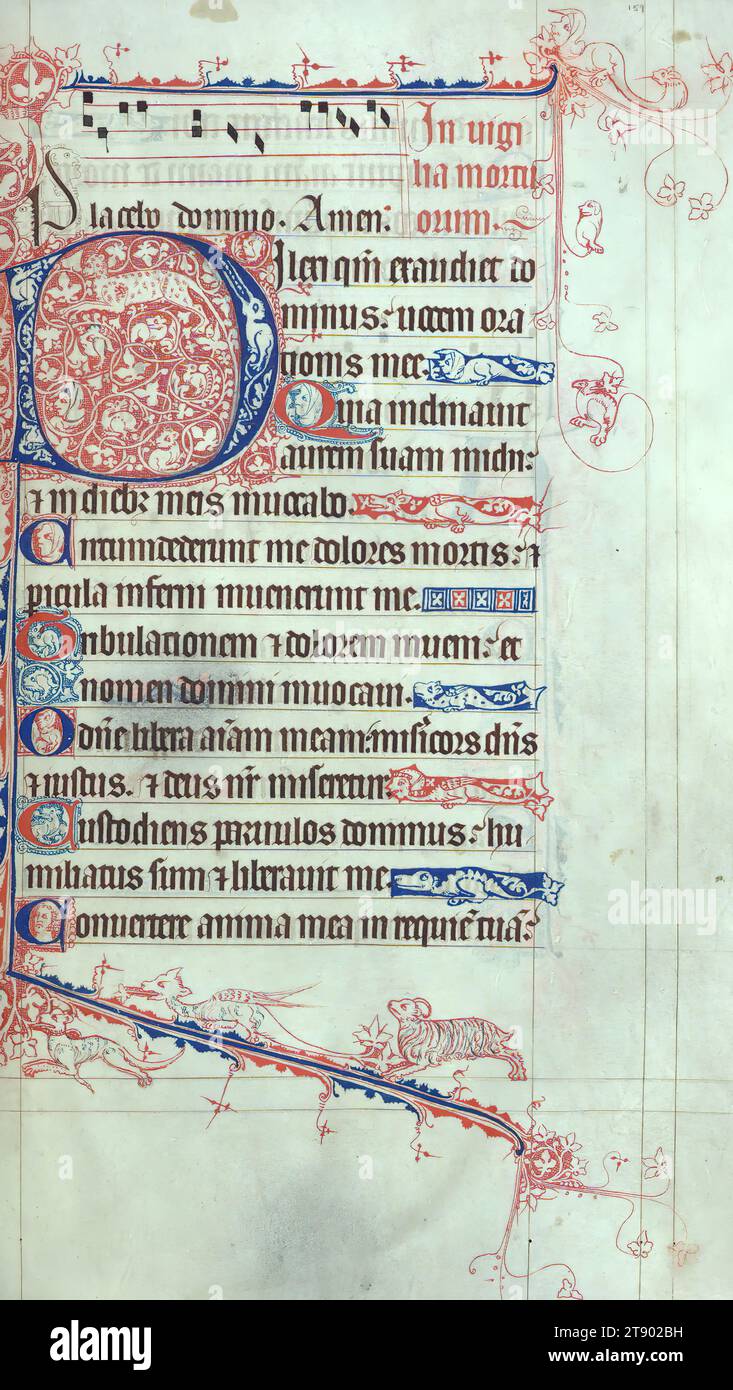 159
In uigi
lia mortu
orum.
Placebo domino. Amen.
Dilexi qm exaudiet do
minus: uocem ora
tionis mee.
Quia inclinauit
aurem suam michi:
⁊ in diebz meis inuocabo.
Circumdederunt me dolores mortis: ⁊
pericula inferni inuenerunt me.
Tribulationem ⁊ dolorem inueni: et
nomen domini inuocaui.
O dne libera aiam meam: misicors dns
⁊ iustus. ⁊ deus nr miseretur.
Custodiens paruulos dominus: hu
miliatus sum ⁊ liberauit me.
Conuertere anima mea in requie tua:
alamy
alamy
Image ID: 2T902BH
www.alamy.com